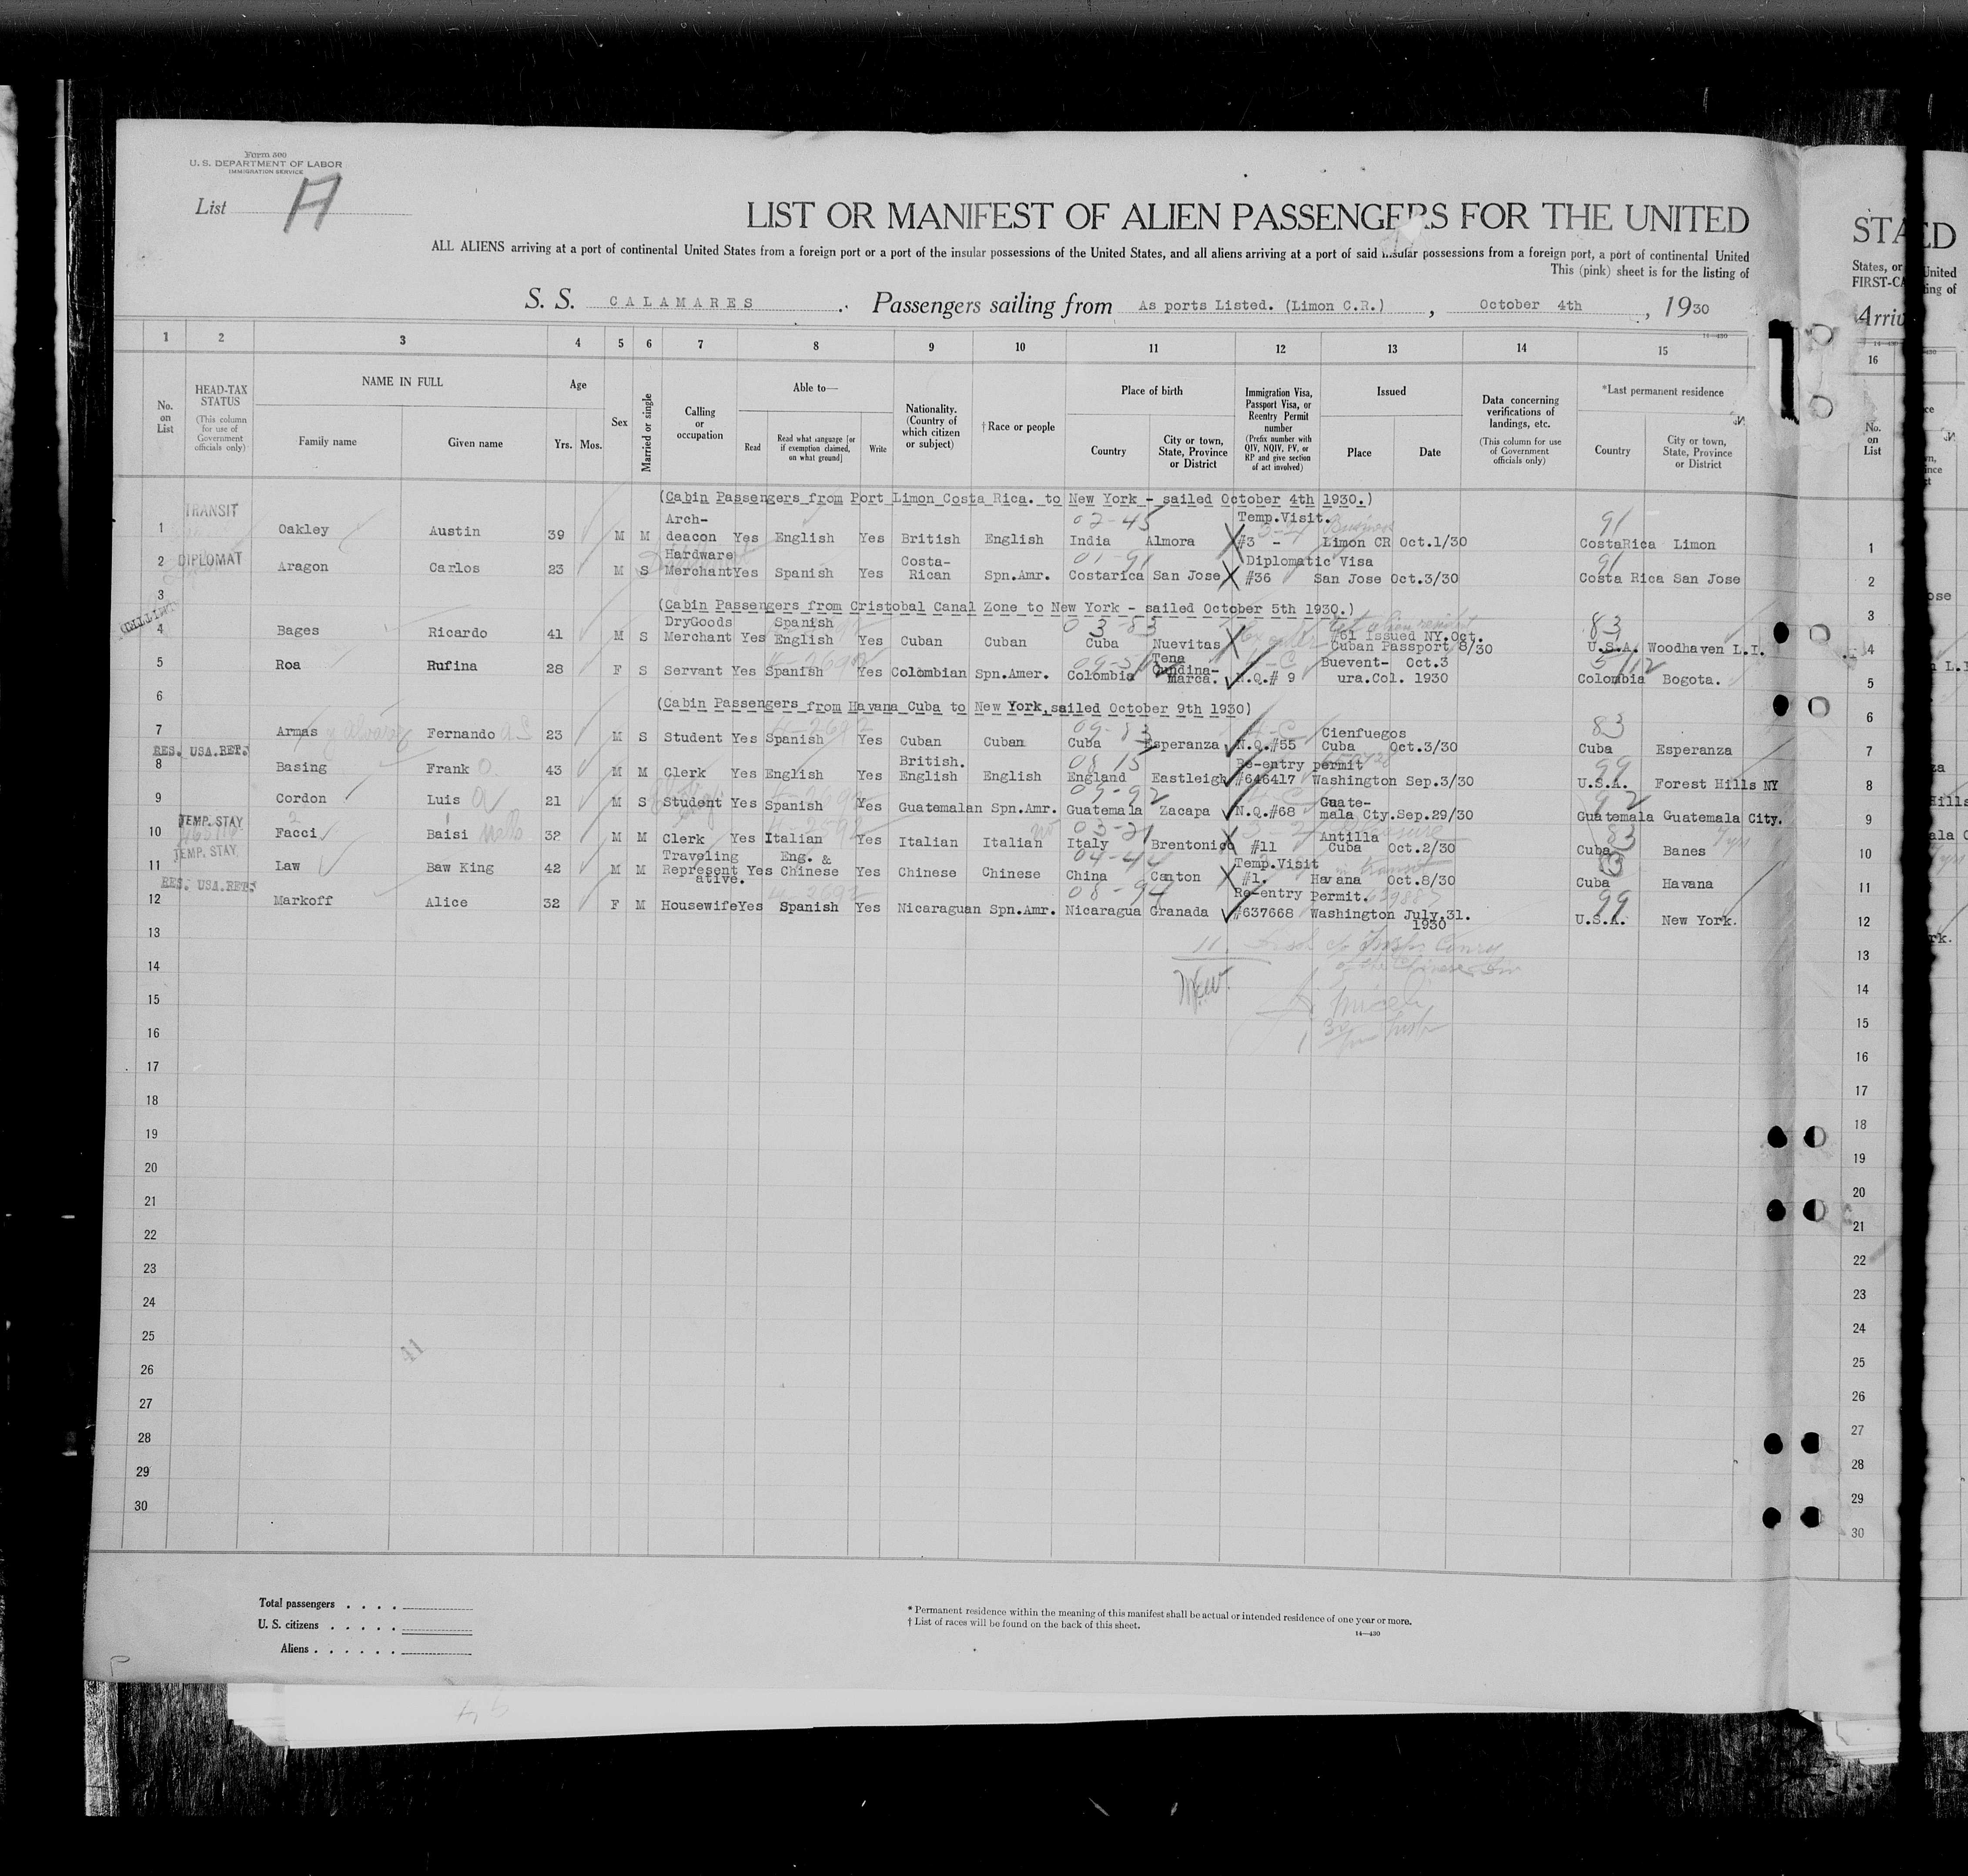 Form 500
U. S. DEPARTMENT OF LABOR
IMMIGRATION SERVICE
List A
LIST OR MANIFEST OF ALIEN PASSENGERS FOR THE UNITED
ALL ALIENS arriving at a port of continental United States from a foreign port or a port of the insular possessions of the United States, and all aliens arriving at a port of said insular possessions from a foreign port, a port of continental United
This (pink) sheet is for the listing of
S. S. CALAMARES Passengers sailing from As ports Listed. (Limon C.R.) , October 4th , 1930
14—430
1 2 3 4 5 6 7 8 9 10 11 12 13 14 15
No. on List
HEAD-TAX STATUS (This column for use of Government officials only)
NAME IN FULL
Family name Given name
Age
Yrs. Mos.
Sex
Married or single
Calling or occupation
Able to—
Read Read what language [or if exemption claimed, on what ground] Write
Nationality. (Country of which citizen or subject)
†Race or people
Place of birth
Country City or town, State, Province or District
Immigration Visa, Passport Visa, or Reentry Permit number (Prefix number with QIV, NQIV, PV, or RP and give section of act involved)
Issued
Place Date
Data concerning verifications of landings, etc. (This column for use of Government officials only)
*Last permanent residence
Country City or town, State, Province or District
(Cabin Passengers from Port Limon Costa Rica. to New York - sailed October 4th 1930.)
TRANSIT Arch- 02-45 Temp.Visit. 91
1 Oakley Austin 39 M M deacon Yes English Yes British English India Almora #3 - Limon CR Oct.1/30 CostaRica Limon
Hardware Costa- 01-91 Diplomatic Visa 91
2 DIPLOMAT Aragon Carlos 23 M S Merchant Yes Spanish Yes Rican Spn.Amr. Costarica San Jose #36 San Jose Oct.3/30 Costa Rica San Jose
3 (Cabin Passengers from Cristobal Canal Zone to New York - sailed October 5th 1930.)
DryGoods Spanish 03-83 #61 Issued NY.Oct. 83
4 Bages Ricardo 41 M S Merchant Yes English Yes Cuban Cuban Cuba Nuevitas Cuban Passport 8/30 U.S.A. Woodhaven L.I.
Tena Cundina- Buevent- Oct.3
5 Roa Rufina 28 F S Servant Yes Spanish Yes Colombian Spn.Amer. Colombia Marca. N.Q.# 9 ura.Col. 1930 Colombia Bogota.
6 (Cabin Passengers from Havana Cuba to New York,sailed October 9th 1930)
09-83 Cienfuegos 83
7 Armas y Alvarez Fernando 23 M S Student Yes Spanish Yes Cuban Cuban Cuba Esperanza N.Q.#55 Cuba Oct.3/30 Cuba Esperanza
RES. USA.RET. British. 08 15 Re-entry permit 99
8 Basing Frank O. 43 M M Clerk Yes English Yes English English England Eastleigh #646417 Washington Sep.3/30 U.S.A. Forest Hills NY
09-92 Guate- 92
9 Cordon Luis A 21 M S Student Yes Spanish Yes Guatemalan Spn.Amr. Guatemala Zacapa N.Q.#68 mala Cty.Sep.29/30 Guatemala Guatemala City.
TEMP. STAY 03-21 Antilla 83
10 Facci Baisi 32 M M Clerk Yes Italian Yes Italian Italian Italy Brentonico #11 Cuba Oct.2/30 Cuba Banes
TEMP. STAY Traveling Eng. & 04-44 Temp.Visit in transit
11 Law Baw King 42 M M Represent ative. Yes Chinese Yes Chinese Chinese China Canton #1. Havana Oct.8/30 Cuba Havana
RES. USA.RET. 08-94 Re-entry Permit. 99
12 Markoff Alice 32 F M Housewife Yes Spanish Yes Nicaraguan Spn.Amr. Nicaragua Granada #637668 Washington July.31. 1930 U.S.A. New York.
13
14
15
16
17
18
19
20
21
22
23
24
25
26
27
28
29
30
Total passengers
U. S. citizens
Aliens
* Permanent residence within the meaning of this manifest shall be actual or intended residence of one year or more.
† List of races will be found on the back of this sheet.
14—430
STA
States, or
FIRST-CA
Arriv
16
No. on List
1
2
3
4
5
6
7
8
9
10
11
12
13
14
15
16
17
18
19
20
21
22
23
24
25
26
27
28
29
30